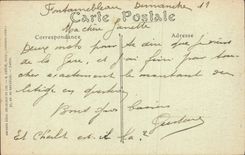 Fontainebleau Dimanche 11
Carte Postale
Ma chère Ginette
Correspondance Adresse
Deux mots pour te dire que je viens
de la Gare, et j'ai fini par tou-
cher exactement le montant du
litige en question.
Bons gros baisers
Et Charlot est-il là?